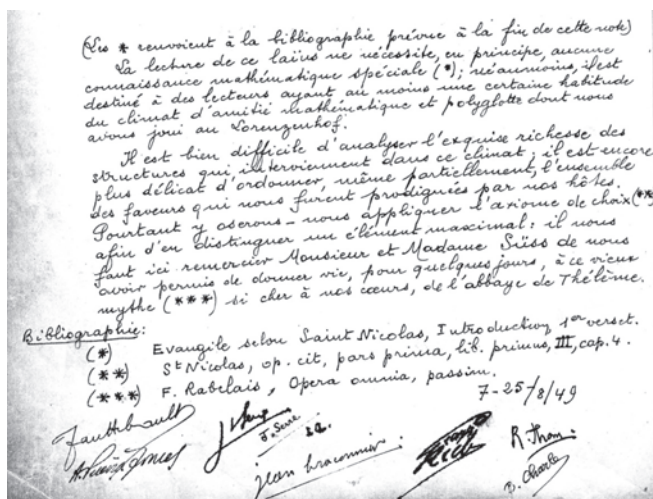 (Les * renvoient à la bibliographie prévue à la fin de cette note)
La lecture de ce laïus ne nécessite, en principe, aucune
connaissance mathématique spéciale (*); néanmoins, il est
destiné à des lecteurs ayant au moins une certaine habitude
du climat d'amitié mathématique et polyglotte dont nous
avons joui au Lorenzenhof.
Il est bien difficile d'analyser l'exquise richesse des
structures qui interviennent dans ce climat; il est encore
plus délicat d'ordonner, même partiellement, l'ensemble
des faveurs qui nous furent prodiguées par nos hôtes.
Pourtant y oserons-nous appliquer l'axiome de choix (**)
afin d'en distinguer un élément maximal: il nous
faut ici remercier Monsieur et Madame Süss de nous
avoir permis de donner vie, pour quelques jours, à ce vieux
mythe (***) si cher à nos cœurs, de l'abbaye de Thélème.
Bibliographie:
(*) Evangile selon Saint Nicolas, Introduction, 1er verset.
(**) St Nicolas, op. cit, pars prima, lib. primus, III, cap. 4.
(***) F. Rabelais, Opera omnia, passim.
7-25/8/49
J. Serre
jean braconnier
R. Thom